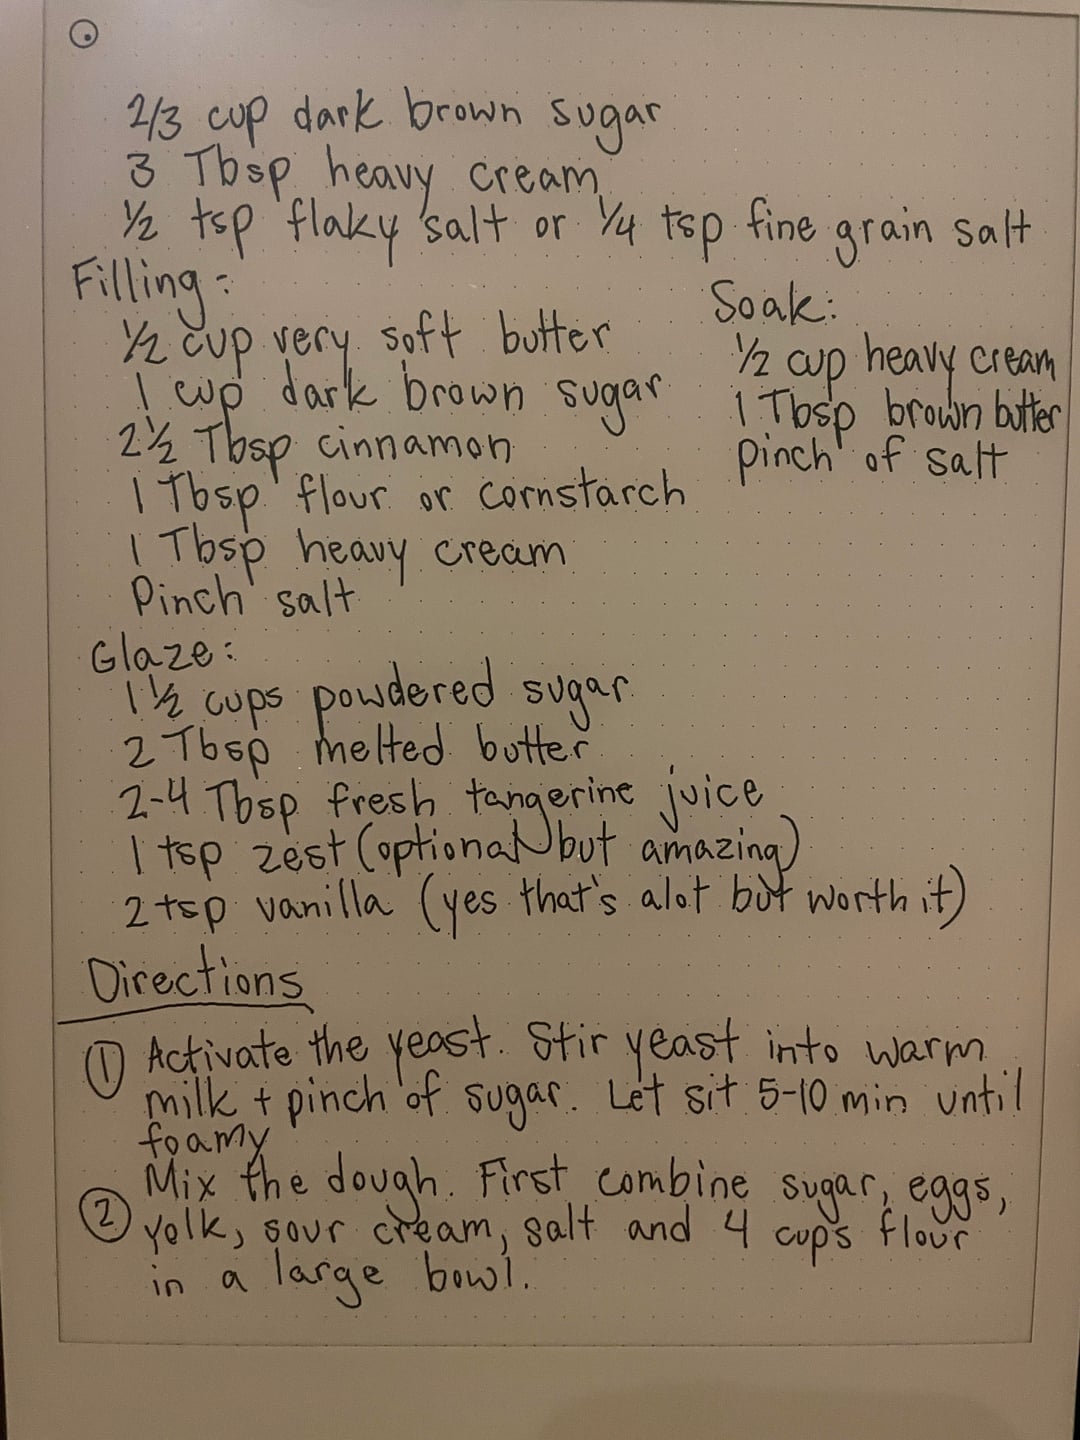 2/3 cup dark brown sugar
3 Tbsp heavy cream
½ tsp flaky salt or ¼ tsp fine grain salt
Filling:
½ cup very soft butter
1 cup dark brown sugar
2½ Tbsp cinnamon
1 Tbsp flour or cornstarch
1 Tbsp heavy cream
Pinch salt
Soak:
½ cup heavy cream
1 Tbsp brown butter
pinch of salt
Glaze:
1½ cups powdered sugar
2 Tbsp melted butter
2-4 Tbsp fresh tangerine juice
1 tsp zest (optional but amazing)
2 tsp vanilla (yes that's alot but worth it)
Directions
① Activate the yeast. Stir yeast into warm
milk + pinch of sugar. Let sit 5-10 min until
foamy
② Mix the dough. First combine sugar, eggs,
yolk, sour cream, salt and 4 cups flour
in a large bowl.